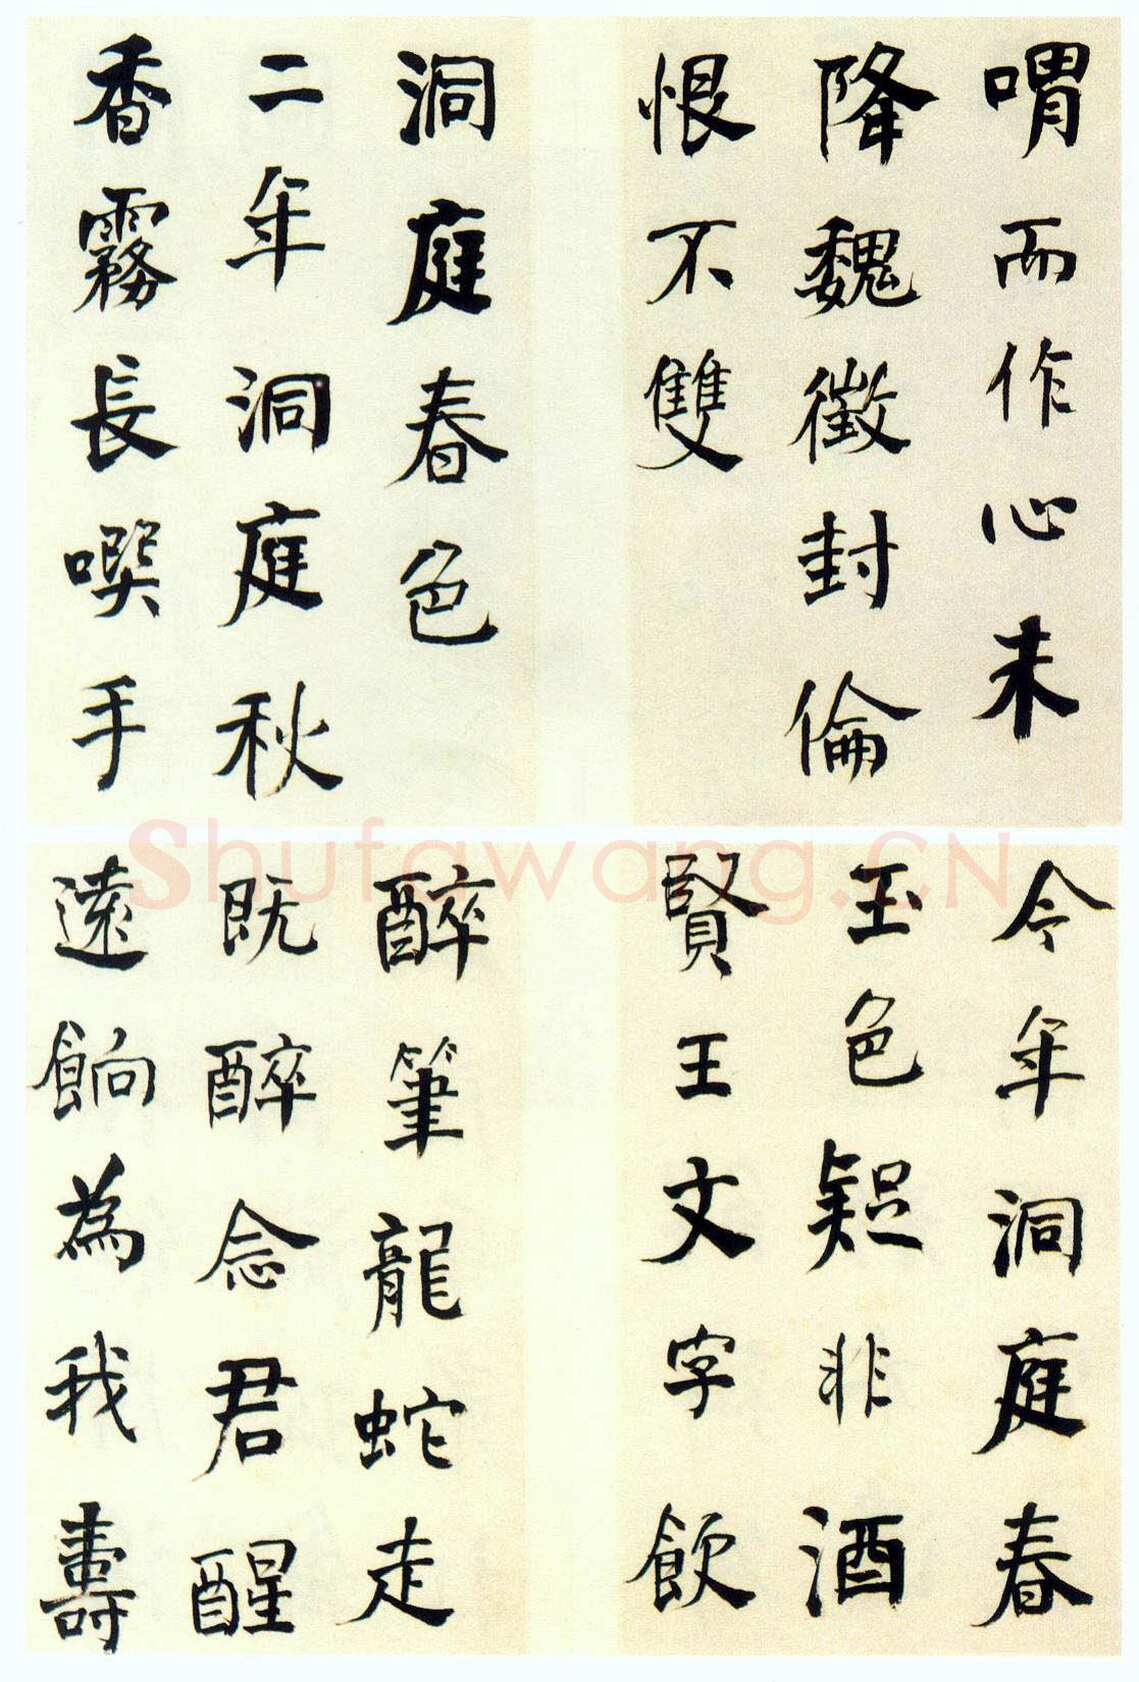 喟而作心未
降魏徵封倫
恨不雙
洞庭春色
二年洞庭秋
香霧長噀手
今年洞庭春
玉色疑非酒
賢王文字飲
醉筆龍蛇走
既醉念君醒
遠餉為我壽
Shufawang.CN